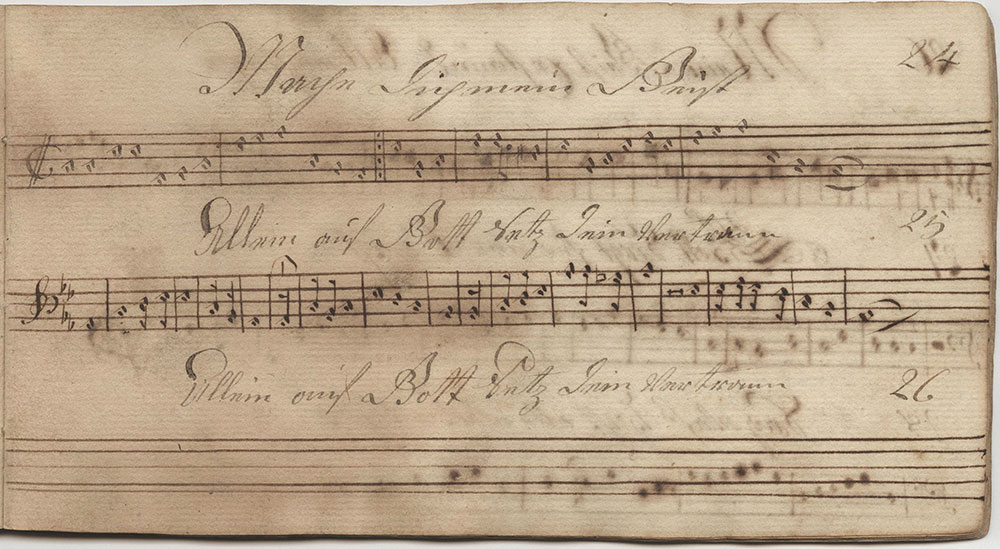 Mache dich mein Geist 24
Allein auf Gott setz dein Vertraun 25
Allein auf Gott setz dein Vertraun 26